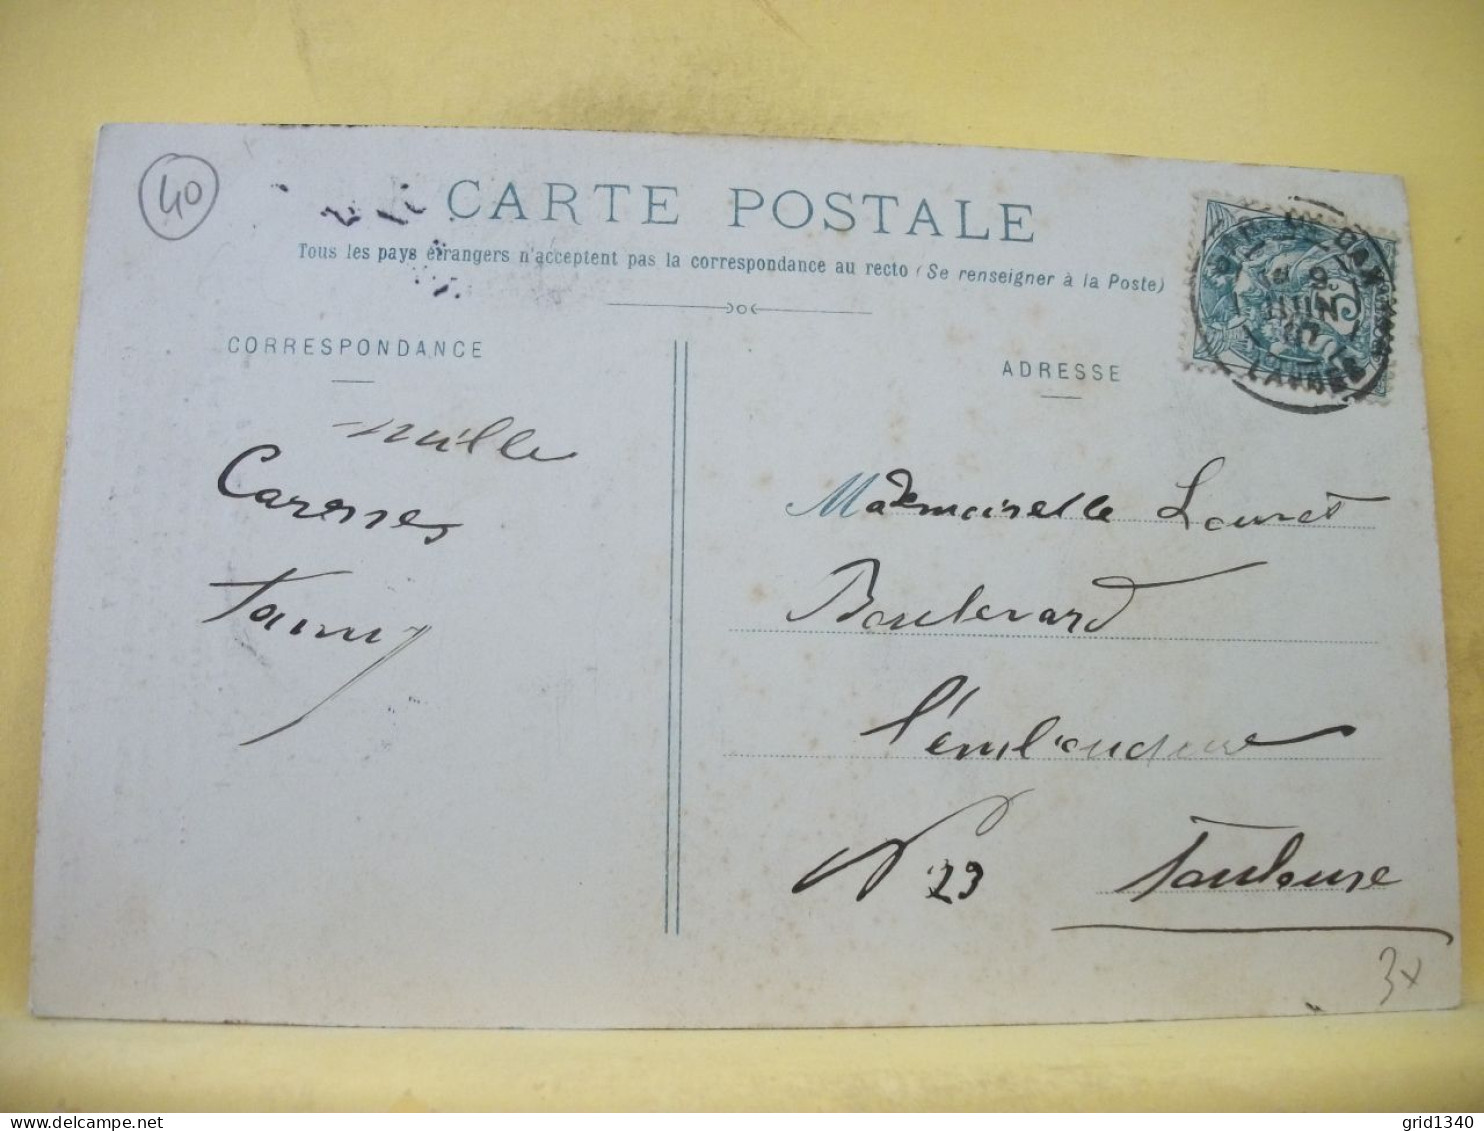 40
CARTE POSTALE
Tous les pays étrangers n'acceptent pas la correspondance au recto (Se renseigner à la Poste)
CORRESPONDANCE
ADRESSE
DAX
9
JUIN
LANDES
5
mille
Caresses
Mademoiselle Louret
Boulevard
l'embouchure
N 23 Toulouse
3x
grid1340